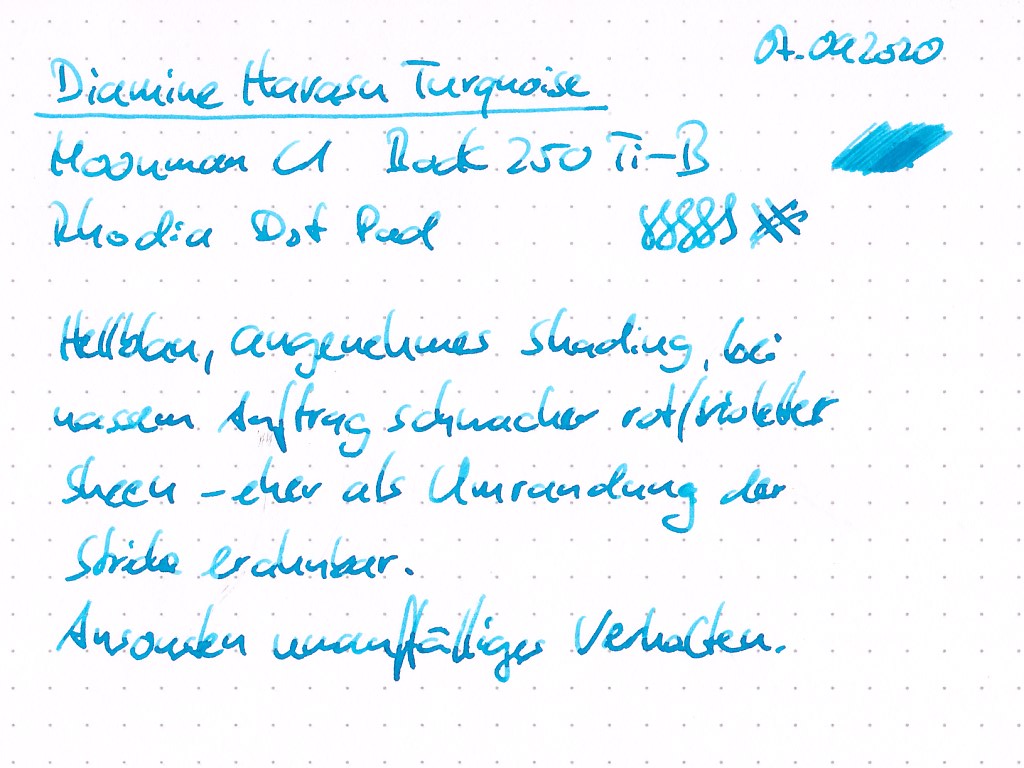 07.09.2020
Diamine Havasu Turquoise
Moonman C1 Bock 250 Ti-B
Rhodia Dot Pad
Hellblau, angenehmes Shading, bei
nassem Auftrag schwacher rot/violetter
Sheen – eher als Umrandung der
Striche erahnbar.
Ansonsten unauffälliges Verhalten.